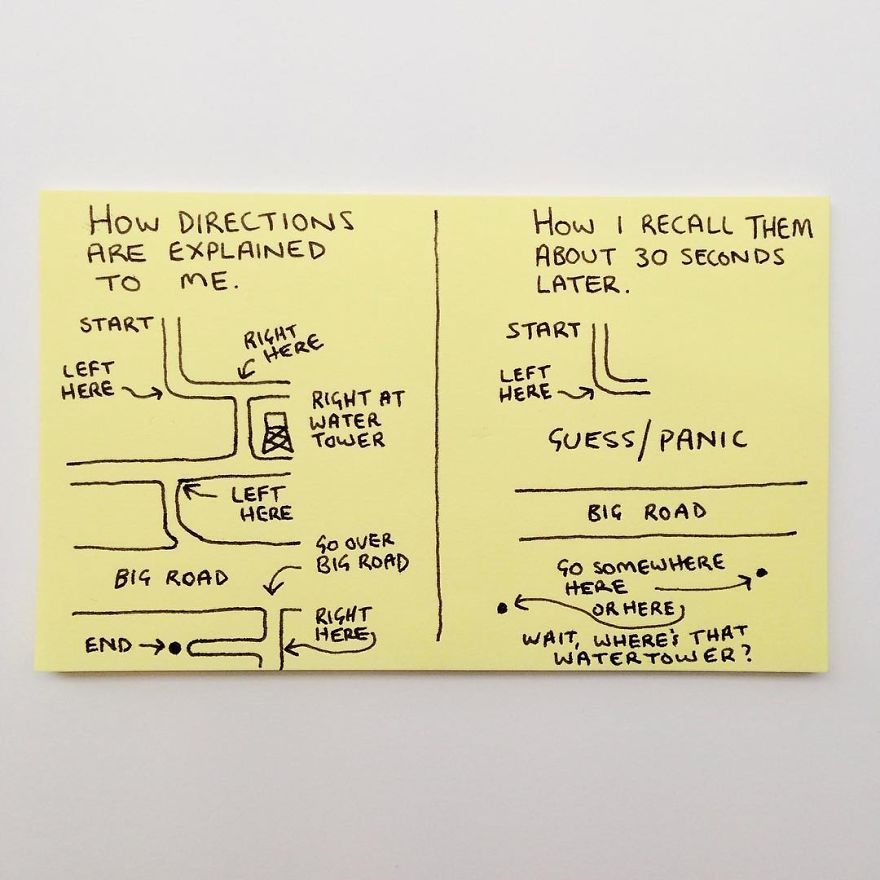 HOW DIRECTIONS
ARE EXPLAINED
TO ME.
START
RIGHT
HERE
LEFT
HERE
RIGHT AT
WATER
TOWER
LEFT
HERE
GO OVER
BIG ROAD
BIG ROAD
RIGHT
HERE
END
HOW I RECALL THEM
ABOUT 30 SECONDS
LATER.
START
LEFT
HERE
GUESS/PANIC
BIG ROAD
GO SOMEWHERE
HERE
OR HERE
WAIT, WHERE'S THAT
WATERTOWER?